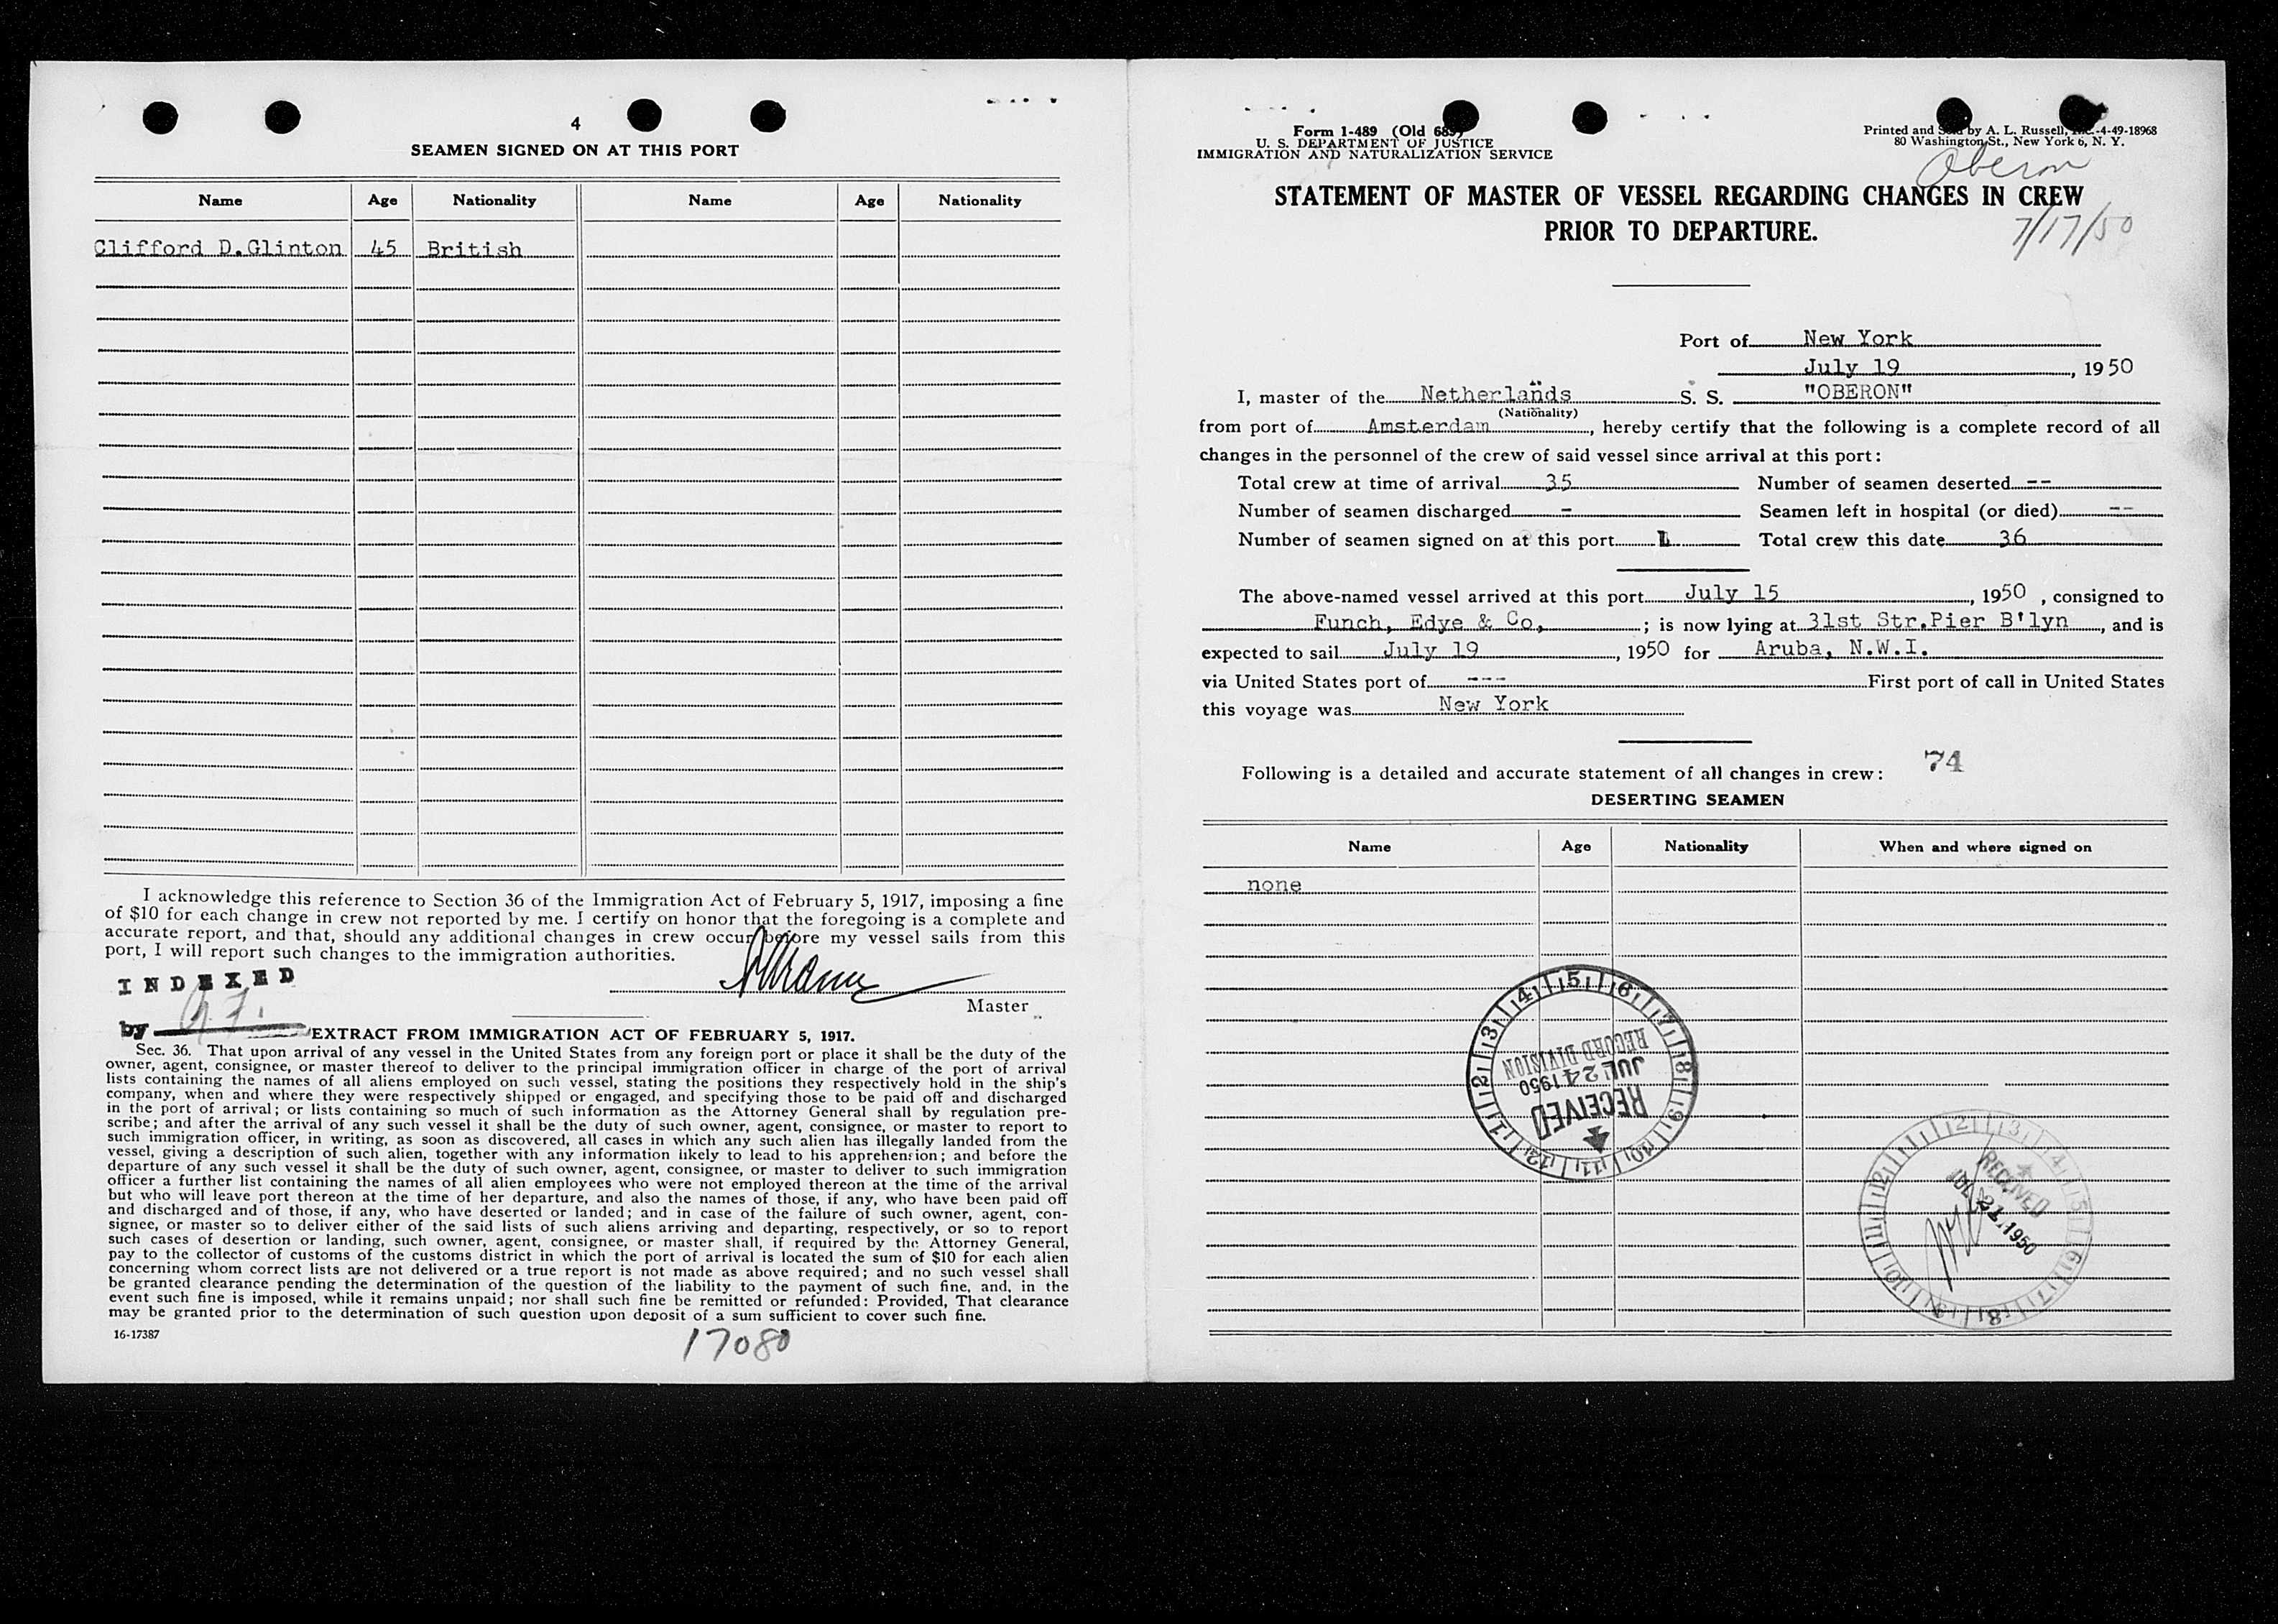 4
SEAMEN SIGNED ON AT THIS PORT
Name Age Nationality Name Age Nationality
Clifford D.Glinton 45 British
I acknowledge this reference to Section 36 of the Immigration Act of February 5, 1917, imposing a fine
of $10 for each change in crew not reported by me. I certify on honor that the foregoing is a complete and
accurate report, and that, should any additional changes in crew occur before my vessel sails from this
port, I will report such changes to the immigration authorities.
INDEXED
Master
by
EXTRACT FROM IMMIGRATION ACT OF FEBRUARY 5, 1917.
Sec. 36. That upon arrival of any vessel in the United States from any foreign port or place it shall be the duty of the
owner, agent, consignee, or master thereof to deliver to the principal immigration officer in charge of the port of arrival
lists containing the names of all aliens employed on such vessel, stating the positions they respectively hold in the ship's
company, when and where they were respectively shipped or engaged, and specifying those to be paid off and discharged
in the port of arrival; or lists containing so much of such information as the Attorney General shall by regulation pre-
scribe; and after the arrival of any such vessel it shall be the duty of such owner, agent, consignee, or master to report to
such immigration officer, in writing, as soon as discovered, all cases in which any such alien has illegally landed from the
vessel, giving a description of such alien, together with any information likely to lead to his apprehension; and before the
departure of any such vessel it shall be the duty of such owner, agent, consignee, or master to deliver to such immigration
officer a further list containing the names of all alien employees who were not employed thereon at the time of the arrival
but who will leave port thereon at the time of her departure, and also the names of those, if any, who have been paid off
and discharged and of those, if any, who have deserted or landed; and in case of the failure of such owner, agent, con-
signee, or master so to deliver either of the said lists of such aliens arriving and departing, respectively, or so to report
such cases of desertion or landing, such owner, agent, consignee, or master shall, if required by the Attorney General,
pay to the collector of customs of the customs district in which the port of arrival is located the sum of $10 for each alien
concerning whom correct lists are not delivered or a true report is not made as above required; and no such vessel shall
be granted clearance pending the determination of the question of the liability to the payment of such fine, and, in the
event such fine is imposed, while it remains unpaid; nor shall such fine be remitted or refunded: Provided, That clearance
may be granted prior to the determination of such question upon deposit of a sum sufficient to cover such fine.
16-17387
17080
Form 1-489 (Old 689)
U. S. DEPARTMENT OF JUSTICE
IMMIGRATION AND NATURALIZATION SERVICE
Printed and Sold by A. L. Russell, Inc.-4-49-18968
80 Washington St., New York 6, N. Y.
Oberon
STATEMENT OF MASTER OF VESSEL REGARDING CHANGES IN CREW
PRIOR TO DEPARTURE.
7/17/50
Port of New York
July 19, 1950
I, master of the Netherlands S. S. "OBERON"
(Nationality)
from port of Amsterdam, hereby certify that the following is a complete record of all
changes in the personnel of the crew of said vessel since arrival at this port:
Total crew at time of arrival 35 Number of seamen deserted --
Number of seamen discharged - Seamen left in hospital (or died) --
Number of seamen signed on at this port 1 Total crew this date 36
The above-named vessel arrived at this port July 15, 1950, consigned to
Funch, Edye & Co, ; is now lying at 31st Str.Pier B'lyn, and is
expected to sail July 19, 1950 for Aruba, N.W.I.
via United States port of --- First port of call in United States
this voyage was New York
74
Following is a detailed and accurate statement of all changes in crew:
DESERTING SEAMEN
Name Age Nationality When and where signed on
none
RECEIVED
JUL 24 1950
RECORD DIVISION
1 2 3 4 5 6 7 8 9 10 11 12
RECEIVED
1 2 3 4 5 6 7 8 9 10 11 12